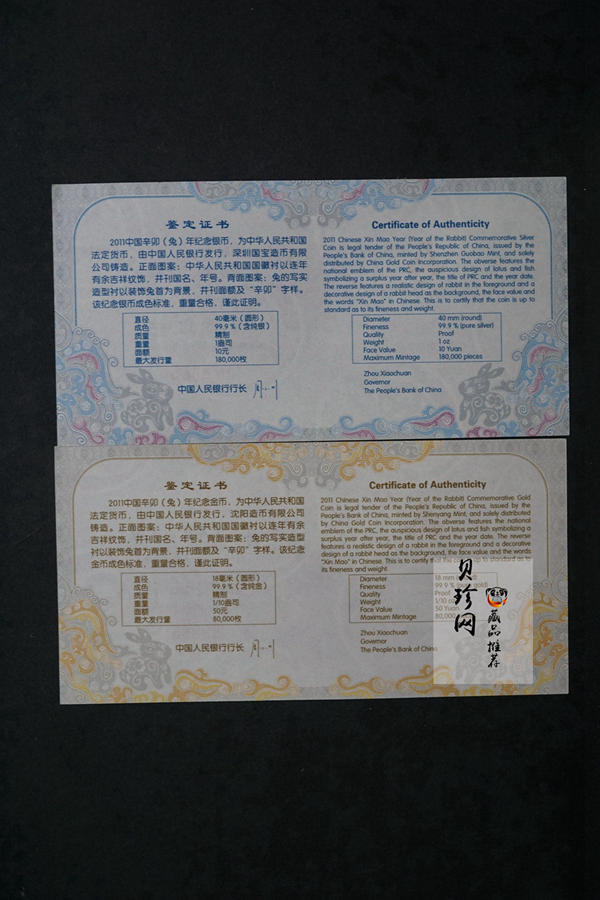 鉴定证书
2011中国辛卯（兔）年纪念银币，为中华人民共和国
法定货币，由中国人民银行发行，深圳国宝造币有限
公司铸造。正面图案：中华人民共和国国徽衬以连年
有余吉祥纹饰，并刊国名、年号。背面图案：兔的写实
造型衬以装饰兔首为背景，并刊面额及“辛卯”字样。
该纪念银币成色标准，重量合格，谨此证明。
直径 40毫米（圆形）
成色 99.9％（含纯银）
质量 精制
重量 1盎司
面额 10元
最大发行量 180,000枚
中国人民银行行长
Certificate of Authenticity
2011 Chinese Xin Mao Year (Year of the Rabbit) Commemorative Silver
Coin is legal tender of the People's Republic of China, issued by the
People's Bank of China, minted by Shenzhen Guobao Mint, and solely
distributed by China Gold Coin Incorporation. The obverse features the
national emblem of the PRC, the auspicious design of lotus and fish
symbolizing a surplus year after year, the title of PRC and the year date.
The reverse features a realistic design of a rabbit in the foreground and a
decorative design of a rabbit head as the background, the face value and
the words "Xin Mao" in Chinese. This is to certify that the coin is up to
standard as to its fineness and weight.
Diameter 40 mm (round)
Fineness 99.9 % (pure silver)
Quality Proof
Weight 1 oz
Face Value 10 Yuan
Maximum Mintage 180,000 pieces
Zhou Xiaochuan
Governor
The People's Bank of China
鉴定证书
2011中国辛卯（兔）年纪念金币，为中华人民共和国
法定货币，由中国人民银行发行，沈阳造币有限公司
铸造。正面图案：中华人民共和国国徽衬以连年有余
吉祥纹饰，并刊国名、年号。背面图案：兔的写实造型
衬以装饰兔首为背景，并刊面额及“辛卯”字样。该纪念
金币成色标准，重量合格，谨此证明。
直径 18毫米（圆形）
成色 99.9％（含纯金）
质量 精制
重量 1/10盎司
面额 50元
最大发行量 80,000枚
中国人民银行行长
Certificate of Authenticity
2011 Chinese Xin Mao Year (Year of the Rabbit) Commemorative Gold
Coin is legal tender of the People's Republic of China, issued by the
People's Bank of China, minted by Shenyang Mint, and solely distributed
by China Gold Coin Incorporation. The obverse features the national
emblem of the PRC, the auspicious design of lotus and fish symbolizing a
surplus year after year, the title of PRC and the year date. The reverse
features a realistic design of a rabbit in the foreground and a decorative
design of a rabbit head as the background, the face value and the words
"Xin Mao" in Chinese. This is to certify that the coin is up to standard as to
its fineness and weight.
Diameter 18 mm
Fineness 99.9 % (pure gold)
Quality Proof
Weight 1/10 oz
Face Value 50 Yuan
Maximum Mintage 80,000
Zhou Xiaochuan
Governor
The People's Bank of China
贝珍网
藏品推荐